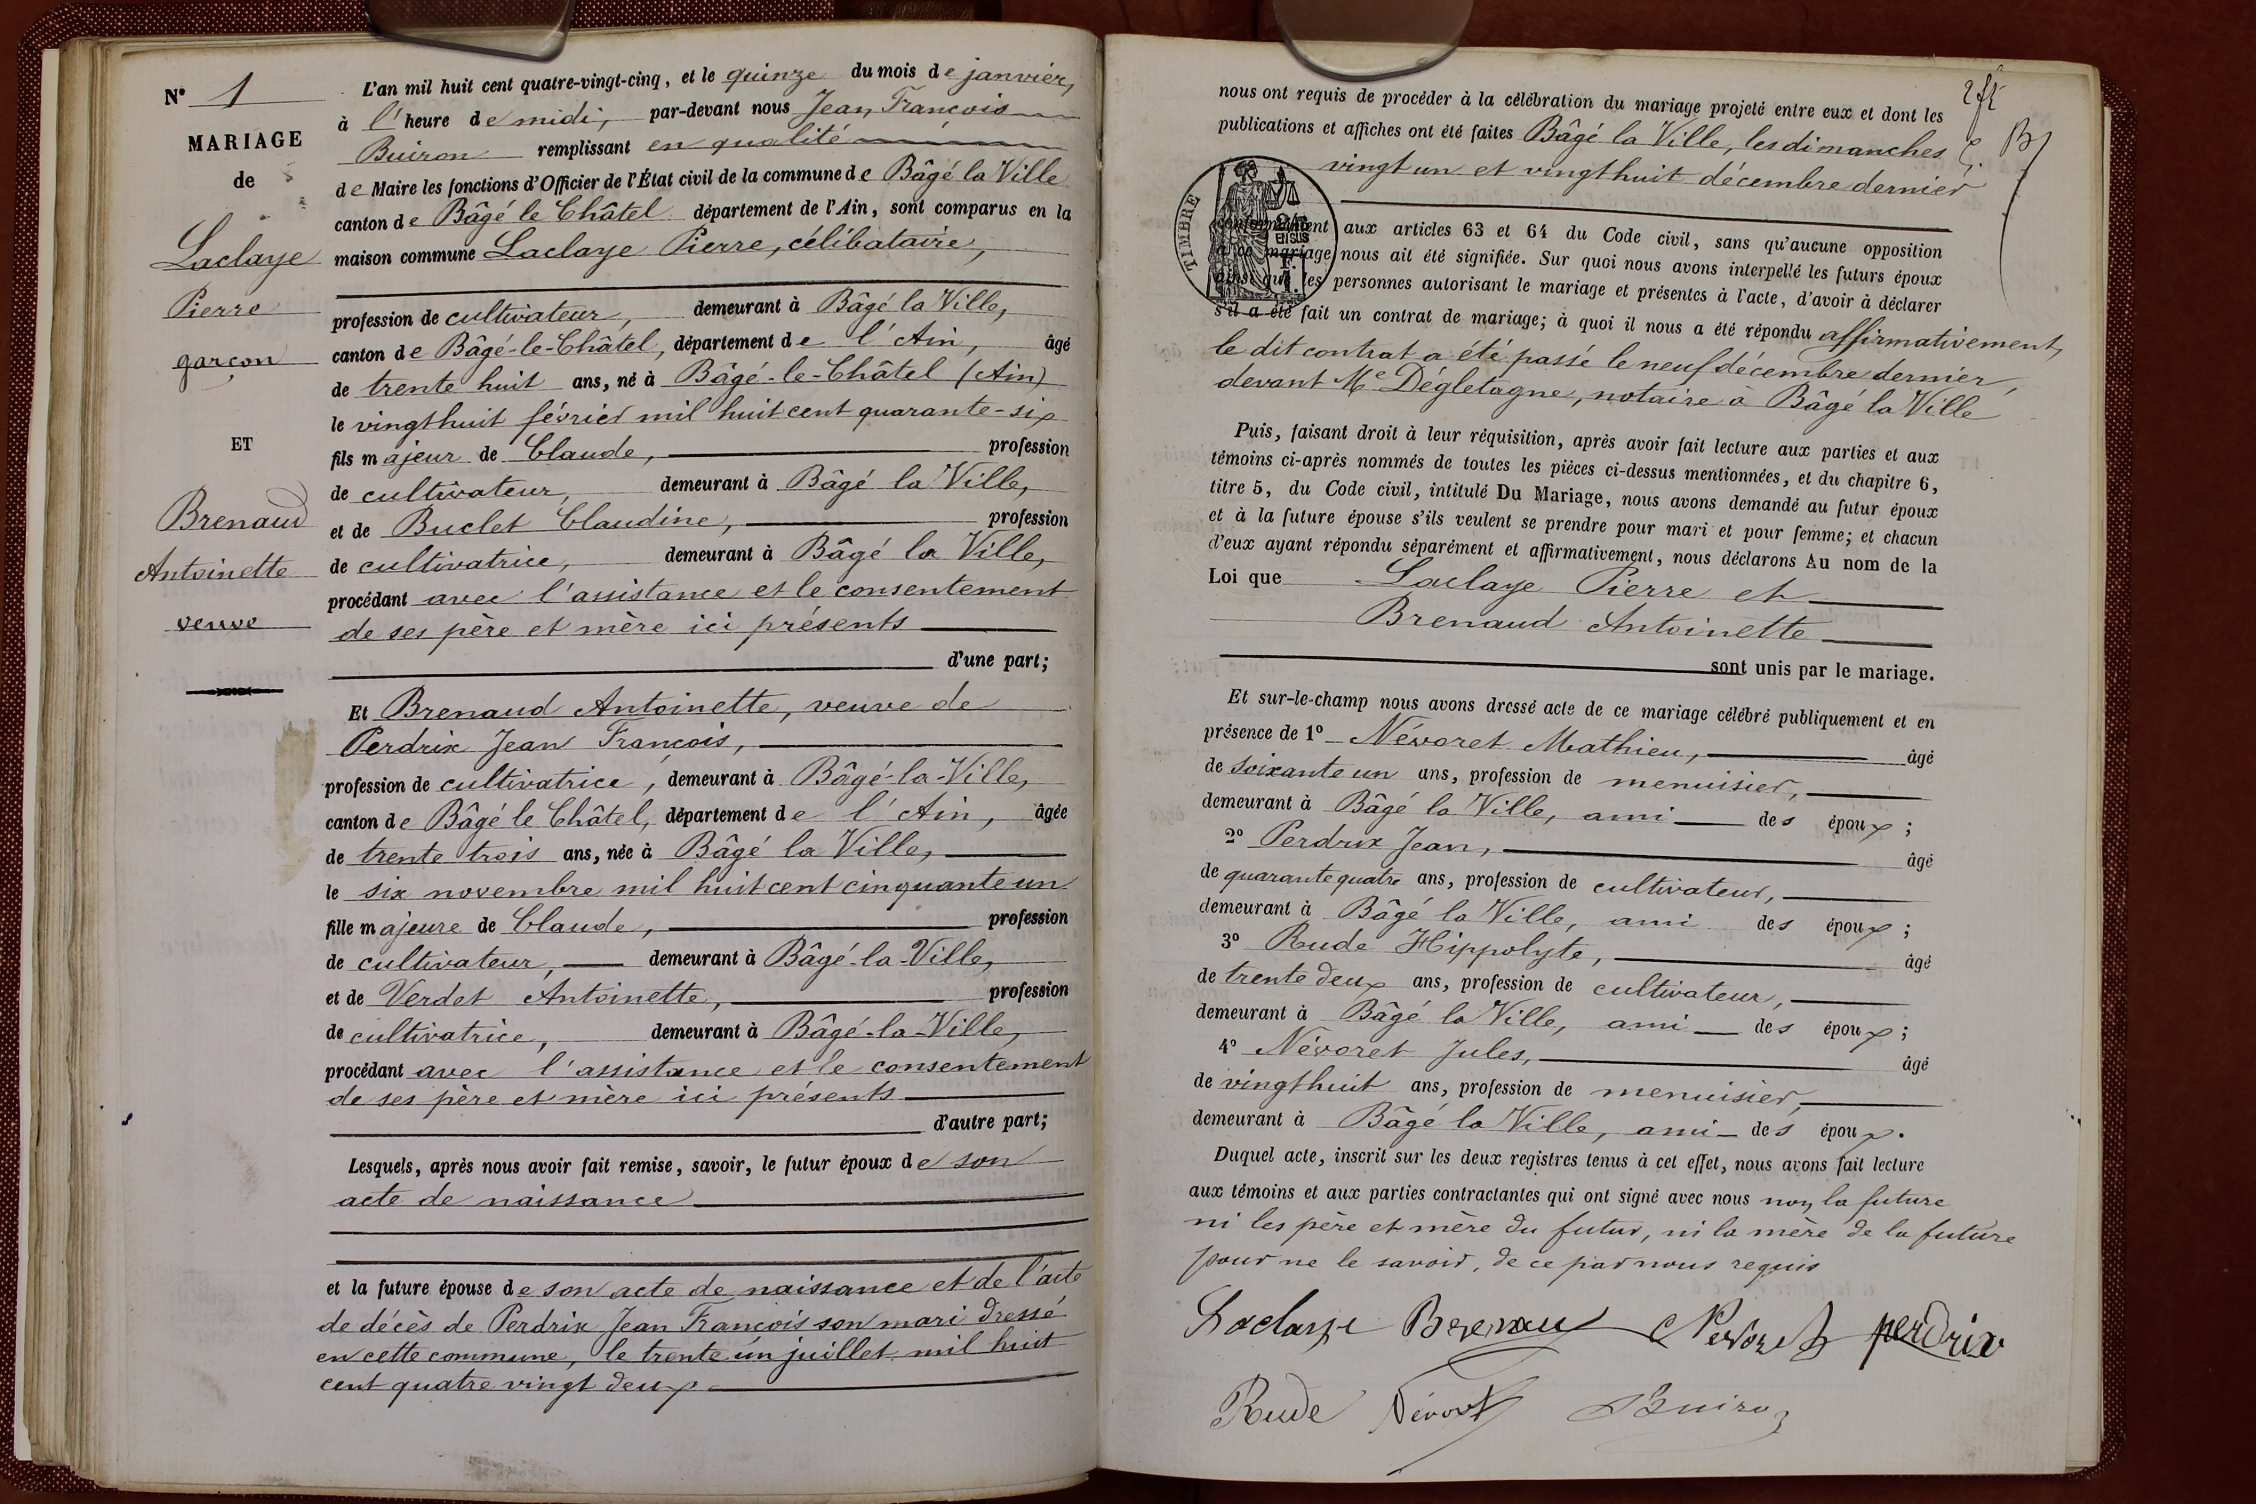 N° 1
MARIAGE
de
Laclaye
Pierre
garçon
ET
Brenaud
Antoinette
veuve
L'an mil huit cent quatre-vingt-cinq, et le quinze du mois de janvier,
à l'heure de midi, par-devant nous Jean François
Buiron remplissant en qualité
de Maire les fonctions d'Officier de l'État civil de la commune de Bâgé la Ville
canton de Bâgé le Châtel département de l'Ain, sont comparus en la
maison commune Laclaye Pierre, célibataire,
profession de cultivateur, demeurant à Bâgé la Ville,
canton de Bâgé-le-Châtel, département de l'Ain, âgé
de trente huit ans, né à Bâgé-le-Châtel (Ain)
le vingt huit février mil huit cent quarante-six
fils majeur de Claude, profession
de cultivateur, demeurant à Bâgé la Ville,
et de Buclet Claudine, profession
de cultivatrice, demeurant à Bâgé la Ville,
procédant avec l'assistance et le consentement
de ses père et mère ici présents
d'une part;
Et Brenaud Antoinette, veuve de
Perdrix Jean François,
profession de cultivatrice, demeurant à Bâgé-la-Ville,
canton de Bâgé le Châtel, département de l'Ain, âgée
de trente trois ans, née à Bâgé la Ville,
le six novembre mil huit cent cinquante un
fille majeure de Claude, profession
de cultivateur, demeurant à Bâgé-la-Ville,
et de Verdet Antoinette, profession
de cultivatrice, demeurant à Bâgé-la-Ville,
procédant avec l'assistance et le consentement
de ses père et mère ici présents
d'autre part;
Lesquels, après nous avoir fait remise, savoir, le futur époux de son
acte de naissance
et la future épouse de son acte de naissance et de l'acte
de décès de Perdrix Jean François son mari dressé
en cette commune, le trente un juillet mil huit
cent quatre vingt deux
nous ont requis de procéder à la célébration du mariage projeté entre eux et dont les
publications et affiches ont été faites Bâgé la Ville, les dimanches
vingt un et vingt huit décembre dernier
TIMBRE
conformément aux articles 63 et 64 du Code civil, sans qu'aucune opposition
à ce mariage nous ait été signifiée. Sur quoi nous avons interpellé les futurs époux
ainsi que les personnes autorisant le mariage et présentes à l'acte, d'avoir à déclarer
s'il a été fait un contrat de mariage; à quoi il nous a été répondu affirmativement,
le dit contrat a été passé le neuf décembre dernier,
devant Me Dégletagne, notaire à Bâgé la Ville
Puis, faisant droit à leur réquisition, après avoir fait lecture aux parties et aux
témoins ci-après nommés de toutes les pièces ci-dessus mentionnées, et du chapitre 6,
titre 5, du Code civil, intitulé Du Mariage, nous avons demandé au futur époux
et à la future épouse s'ils veulent se prendre pour mari et pour femme; et chacun
d'eux ayant répondu séparément et affirmativement, nous déclarons Au nom de la
Loi que Laclaye Pierre et
Brenaud Antoinette
sont unis par le mariage.
Et sur-le-champ nous avons dressé acte de ce mariage célébré publiquement et en
présence de 1° Névoret Mathieu, âgé
de soixante un ans, profession de menuisier,
demeurant à Bâgé la Ville, ami des époux;
2° Perdrix Jean, âgé
de quarante quatre ans, profession de cultivateur,
demeurant à Bâgé la Ville, ami des époux;
3° Rude Hippolyte, âgé
de trente deux ans, profession de cultivateur,
demeurant à Bâgé la Ville, ami des époux;
4° Névoret Jules, âgé
de vingt huit ans, profession de menuisier,
demeurant à Bâgé la Ville, ami des époux.
Duquel acte, inscrit sur les deux registres tenus à cet effet, nous avons fait lecture
aux témoins et aux parties contractantes qui ont signé avec nous non la future
ni les père et mère du futur, ni la mère de la future
pour ne le savoir, de ce par nous requis
Laclaye Brenau Nevoret perdrix
Rude Névoret Buiron